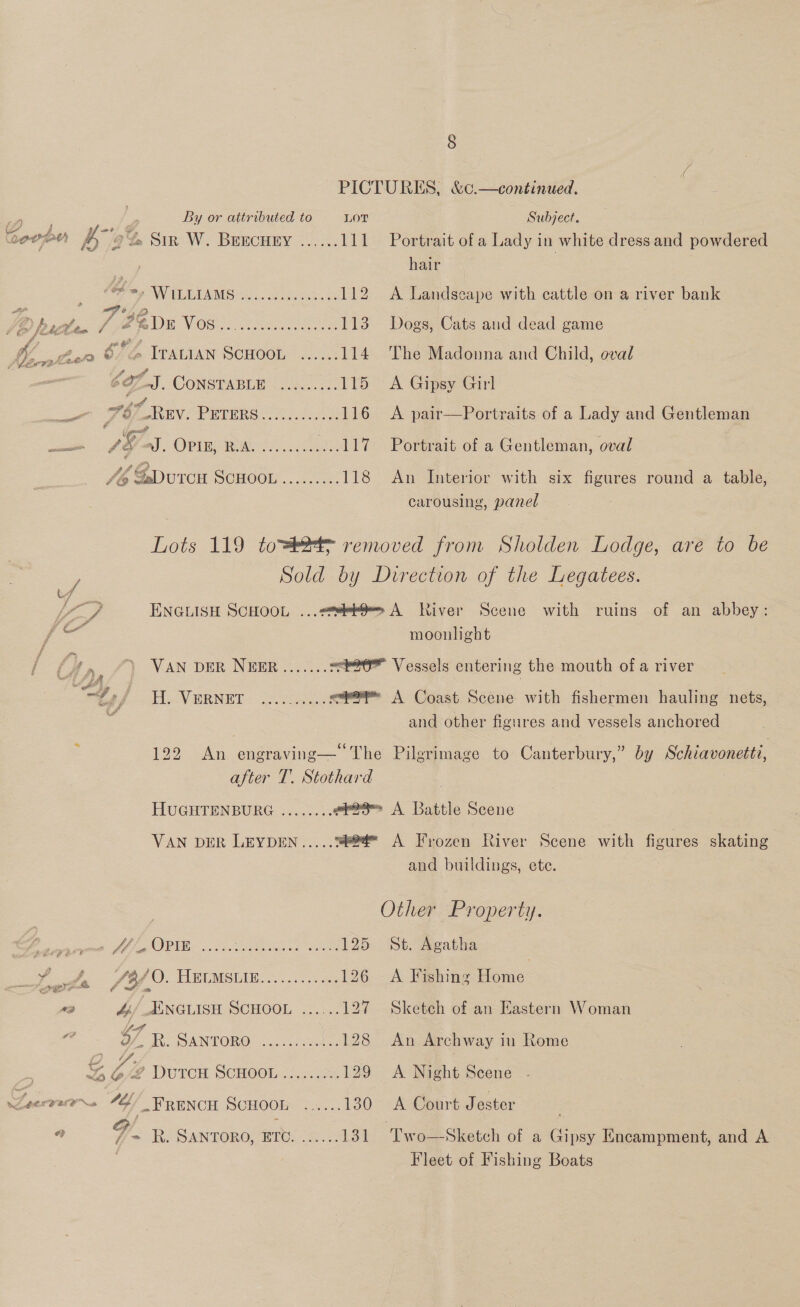 8
PICTURES, &c.—continued.
By or attributed to LOT Subject.
Cooper SIR W. BEECHEY ......111 Portrait of a Lady in white dress and powdered
hair
WILLIAMS ..................112 A Landscape with cattle on a river bank
DE VOS ..................113 Dogs, Cats and dead game
ITALIAN SCHOOL ......114 The Madonna and Child, oval
J. CONSTABLE .........115 A Gipsy Girl
REV. PETERS............116 A pair—Portraits of a Lady and Gentleman
J. OPIE, R.A. ............117 Portrait of a Gentleman, oval
DUTCH SCHOOL.........118 An Interior with six figures round a table,
carousing, panel
Lots 119 to removed from Sholden Lodge, are to be
Sold by Direction of the Legatees.
ENGLISH SCHOOL ... A River Scene with ruins of an abbey:
moonlight
VAN DER NEER....... Vessels entering the mouth of a river
H. VERNET .......... A Coast Scene with fishermen hauling nets,
and other figures and vessels anchored
122 An engraving—“The Pilgrimage to Canterbury,” by Schiavonetti,
after T. Stothard
HUGHTENBURG ........ A Battle Scene
VAN DER LEYDEN..... A Frozen River Scene with figures skating
and buildings, etc.
Other Property.
OPIE ..................125 St. Agatha
O. HELMSLIE............126 A Fishing Home
ENGLISH SCHOOL ......127 Sketch of an Eastern Woman
R. SANTORO ............128 An Archway in Rome
DUTCH SCHOOL.........129 A Night Scene
FRENCH SCHOOL ......130 A Court Jester
R. SANTORO, ETC. ......131 Two—Sketch of a Gipsy Encampment, and A
Fleet of Fishing Boats